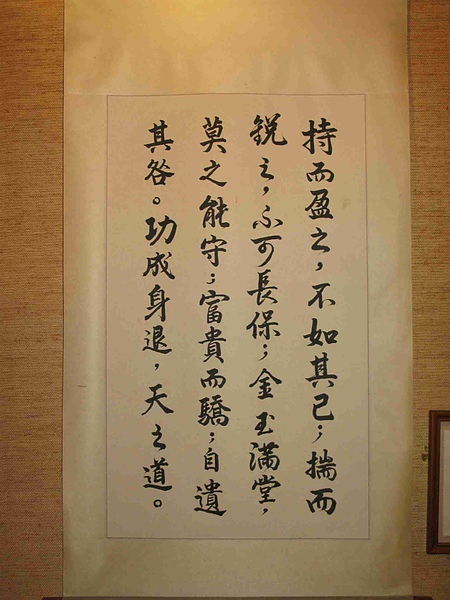 持而盈之，不如其已；揣而
銳之，不可長保；金玉滿堂，
莫之能守；富貴而驕；自遺
其咎。功成身退，天之道。